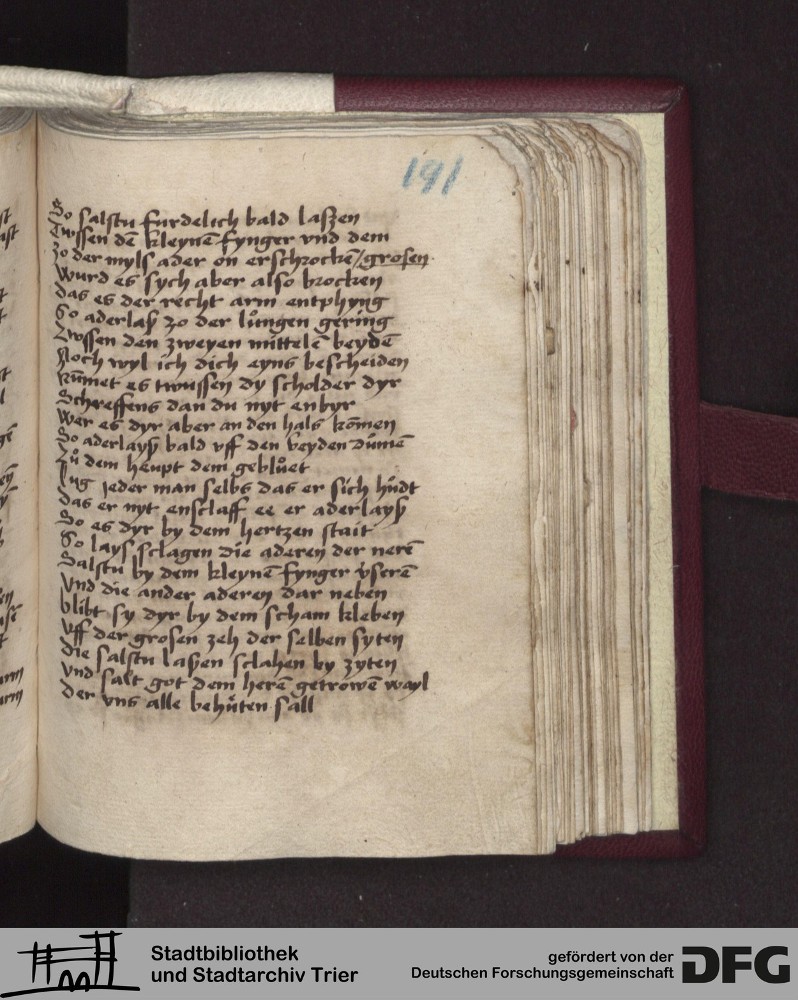 191
So salstu furdelich bald laßen
Twssen dē kleynē fynger vnd dem
zo der myls ader on erschrockē/grosen
Wurd es sych aber also brocken
das es der recht arm entphyng
So aderlaß zo der lůngen gering
Zwssen den zweyen mittelē beydē
Noch wyl ich dich eyns bescheiden
Kūmet es twussen dy scholder dyr
Schreffens dan du nyt enbyr
Wer es dyr aber an den hals kōmen
So aderlayß bald vff den beyden dūmē
Zů dem heupt dem geblůet
Lug jeder man selbs das er sich hůdt
das er nyt enschlaff ee er aderlayß
So es dyr by dem hertzen stait
So lays sclagen die aderen der nerē
Salstu by dem kleynē fynger vserē
Vnd die ander aderen dar neben
blibt sy dyr by dem scham kleben
Vff der grosen zeh der selben syten
die salstu laßen sclahen by zyten
vnd salt got dem herē getrowē wayl
der vns alle behůten sall
Stadtbibliothek
und Stadtarchiv Trier
gefördert von der
Deutschen Forschungsgemeinschaft
DFG